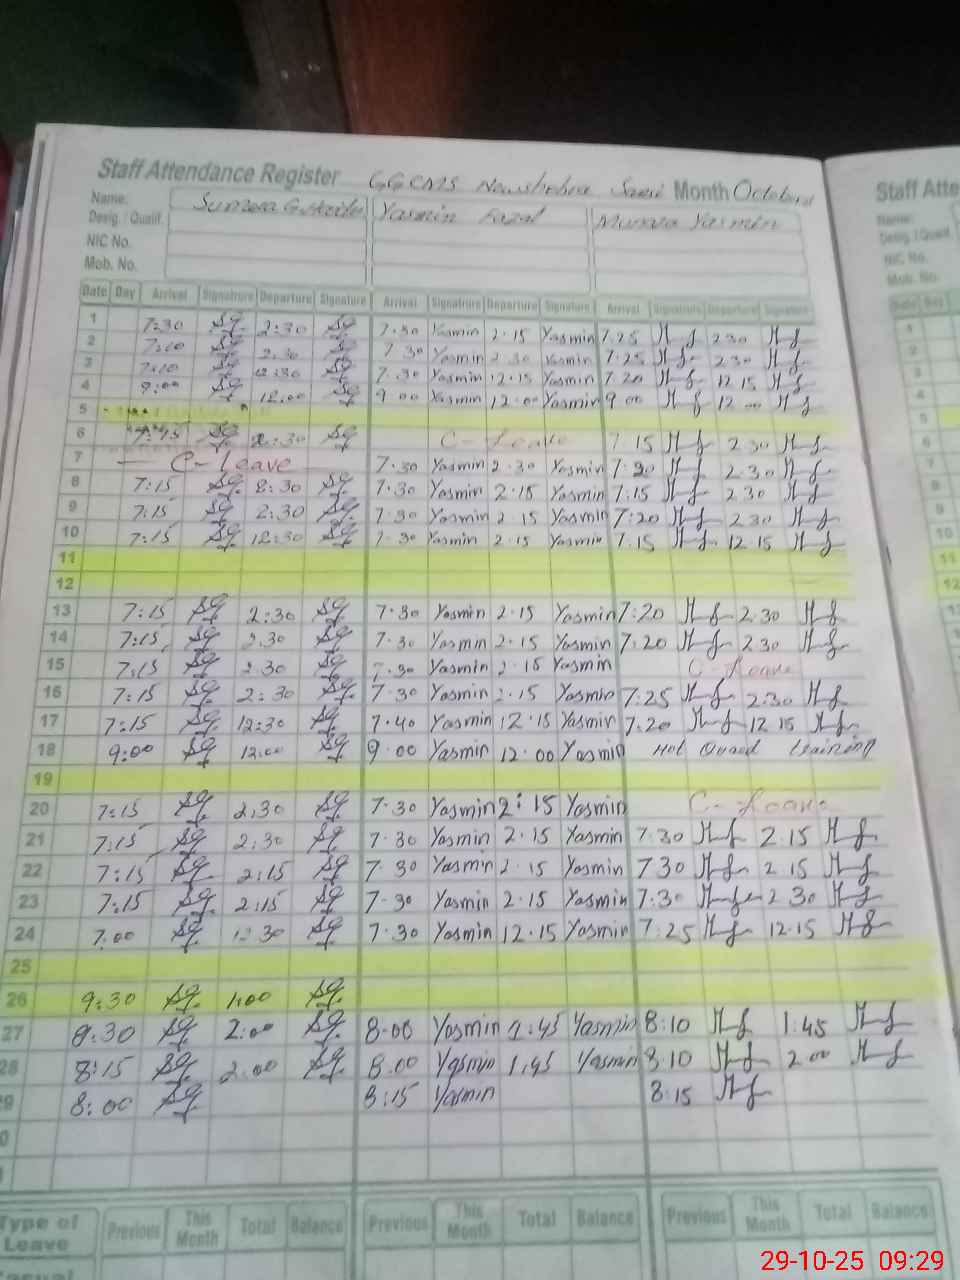 Staff Attendance Register GGCMS Month October
Staff Atte
Name: Yasmin Fazal Yasmin
Desig. / Qualif.
NIC No.
Mob. No.
Date Day Arrival Signature Departure Signature Arrival Signature Departure Signature Arrival Signature Departure Signature
1 7:30 Sg. 2:30 Sg 7.30 Yasmin 2.15 Yasmin 7.25 2 30
2 Sg 2.30 Sg 7 30 Yasmin 2 30 Yasmin 7.25 2 30
3 7:10 Sg 12:30 Sg 7.30 Yasmin 12.15 Yasmin 7 20 12 15
4 9:00 Sg 12.00 Sg 9 00 Yasmin 12.00 Yasmin 9 00 12 00
5
6 7:15 Sg 2:30 Sg C-Leave 7 15 2 30
7 C-Leave 7.30 Yasmin 2.30 Yasmin 2.30
8 7:15 Sg. 2:30 Sg 7.30 Yasmin 2.15 Yasmin 7:15 2 30
9 7:15 Sg 2:30 Sg 7.30 Yasmin 2 15 Yasmin 7:20 2 30
10 7:15 Sg 12:30 Sg 7.30 Yasmin 2.15 Yasmin 7.15 12.15
11
12
13 7:15 Sg 2:30 Sg 7.30 Yasmin 2.15 Yasmin 7:20 2.30
14 7:15 Sg 2.30 Sg 7.30 Yasmin 2.15 Yasmin 7:20 2 30
15 7:15 Sg 2.30 Sg 7.30 Yasmin 2.15 Yasmin C-Leave
16 7:15 Sg 2:30 Sg. 7.30 Yasmin 2.15 Yasmin 7:25 2:30
17 7:15 Sg 12:30 Sg. 7.40 Yasmin 12.15 Yasmin 7.20 12 15
18 9:00 Sg 12:00 Sg 9.00 Yasmin 12.00 Yasmin training
19
20 7:15 Sg 2:30 Sg 7.30 Yasmin 2:15 Yasmin C-Leave
21 7:15 Sg 2:30 Sg 7.30 Yasmin 2.15 Yasmin 7.30 2.15
22 7:15 Sg 2:15 Sg 7.30 Yasmin 2.15 Yasmin 7 30 2 15
23 7:15 Sg 2:15 Sg 7.30 Yasmin 2.15 Yasmin 7:30 2 30
24 7:00 Sg 12 30 Sg 7.30 Yasmin 12.15 Yasmin 7:25 12.15
25
26 9:30 Sg. 1:00 Sg.
27 Sg 2:00 Sg. 8.00 Yasmin 1.45 Yasmin 8:10 1:45
28 8:15 Sg 2:00 Sg 8.00 Yasmin 1.45 Yasmin 8.10 2.00
29 8:00 Sg 8:15 Yasmin 8:15
Type of Leave Previous This Month Total Balance Previous This Month Total Balance Previous This Month Total Balance
29-10-25 09:29